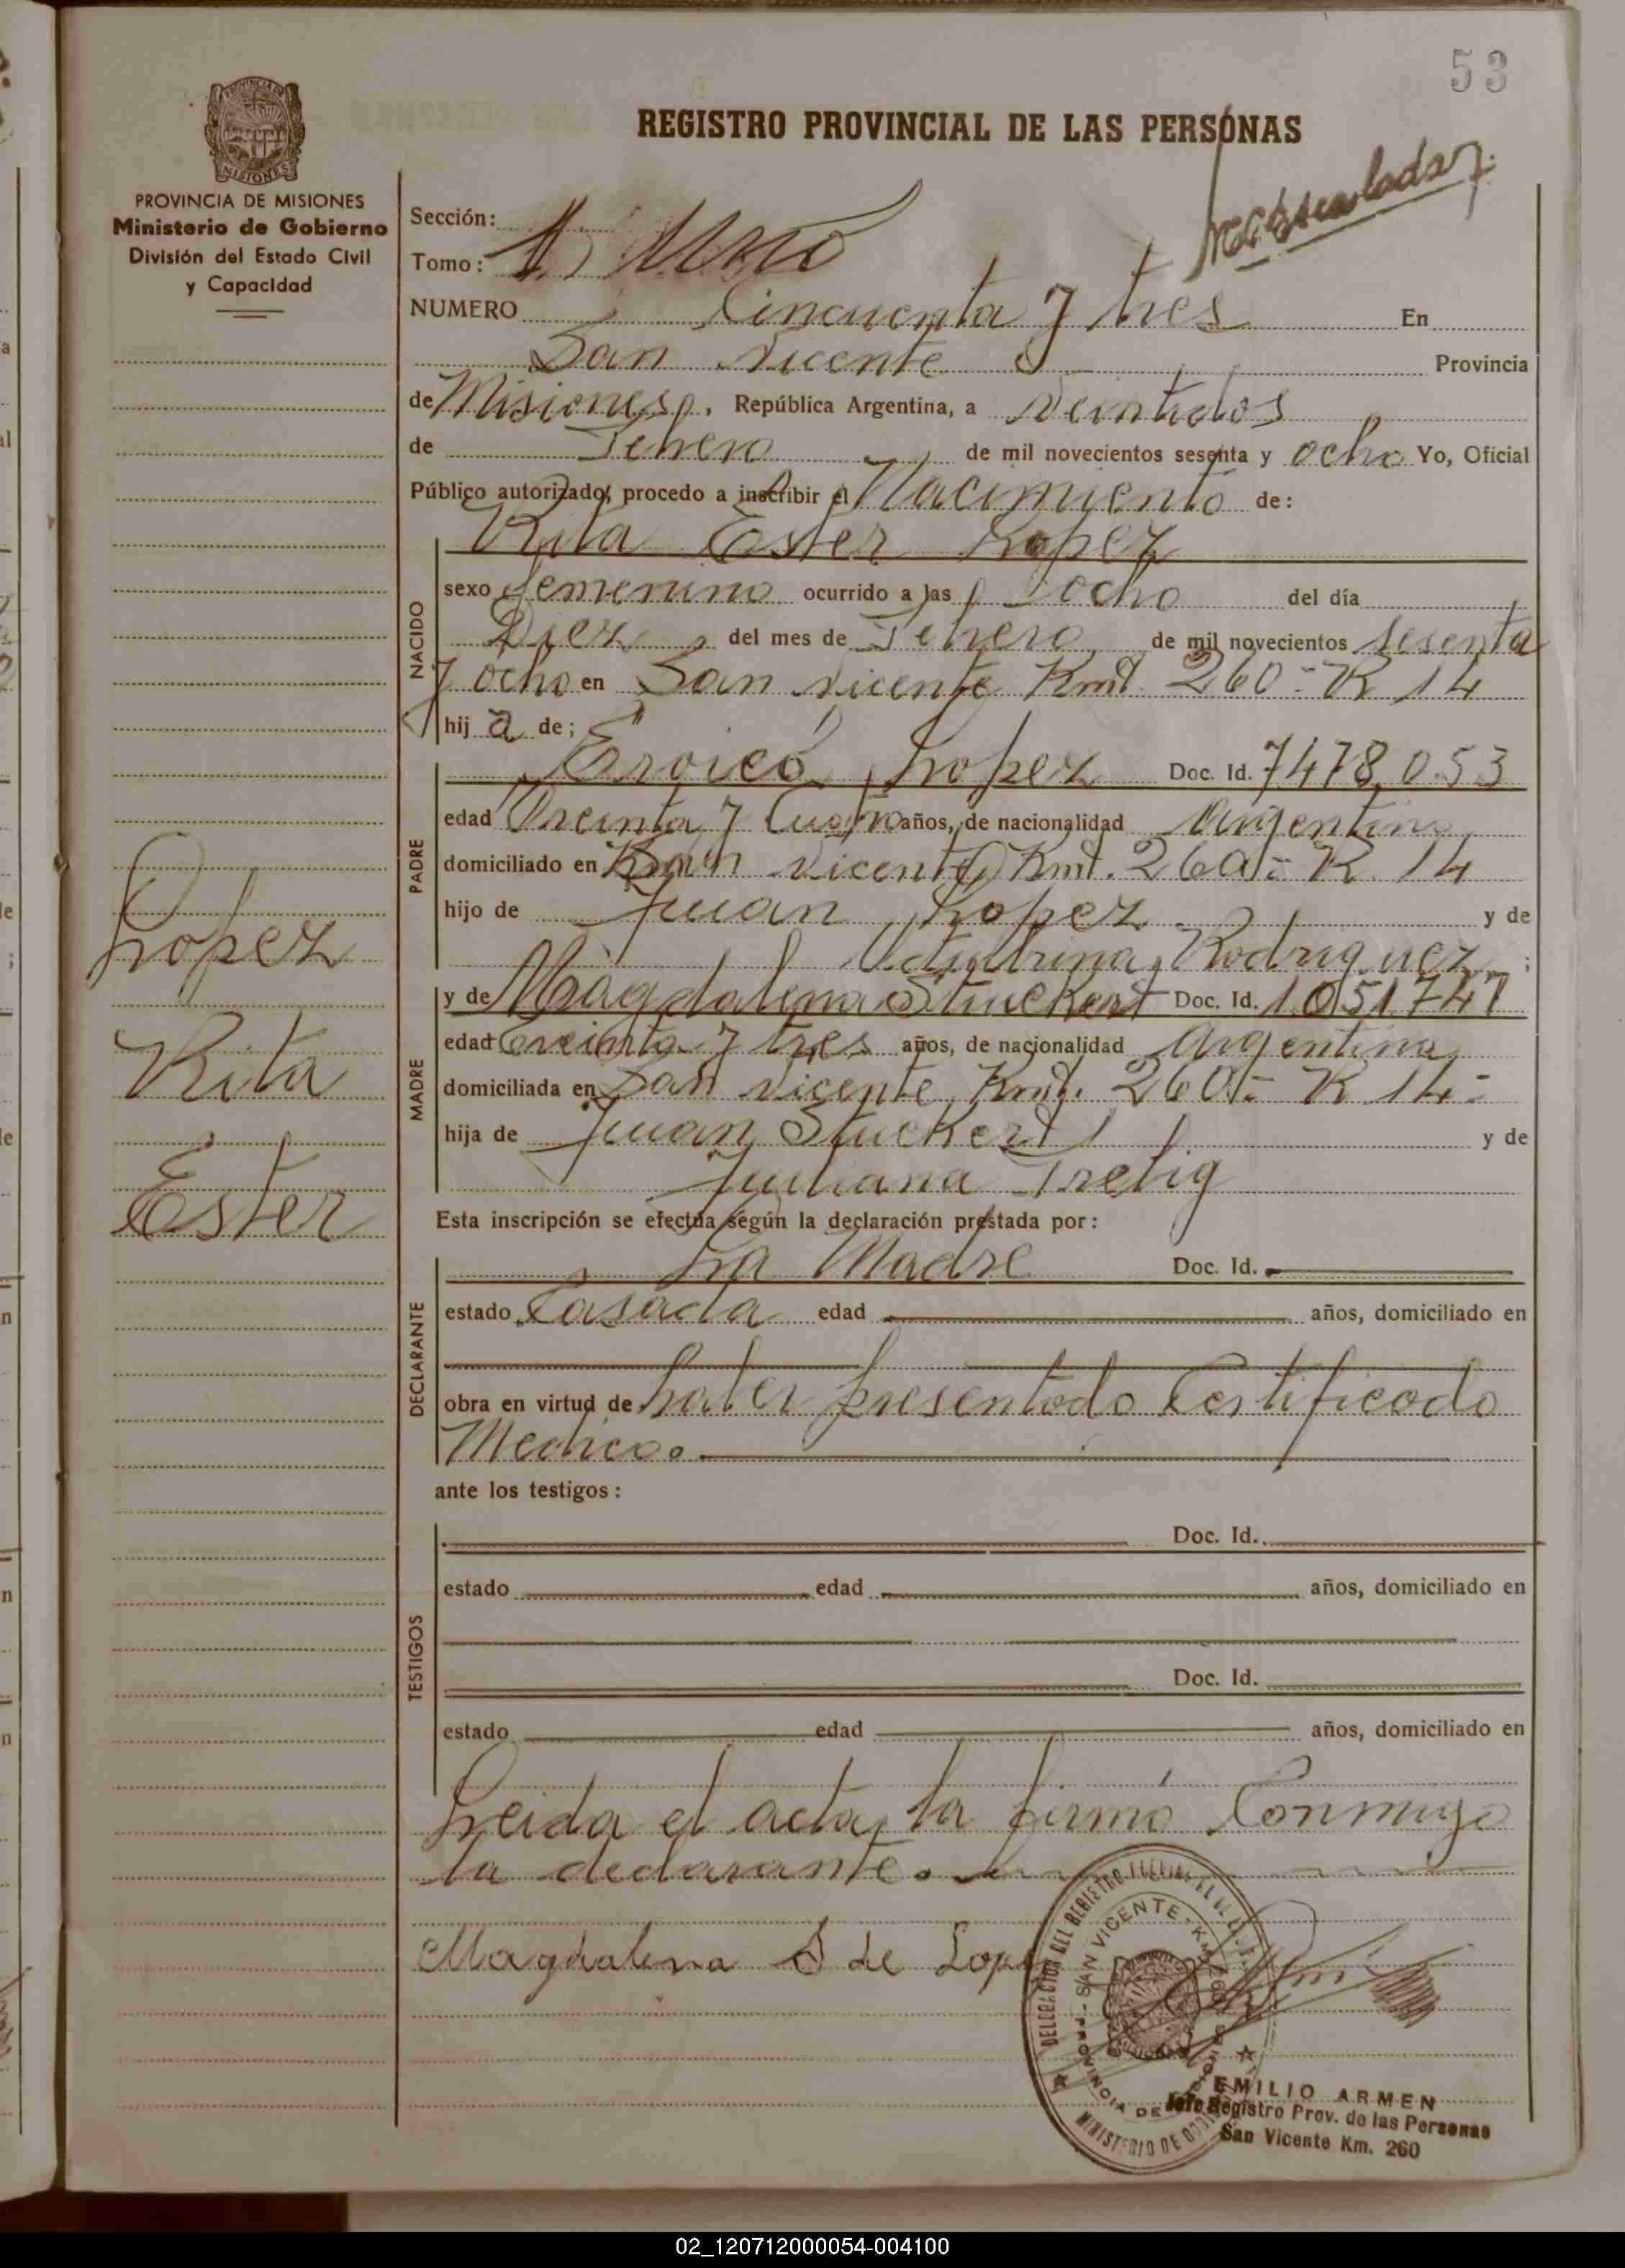 53
REGISTRO PROVINCIAL DE LAS PERSONAS
PROVINCIA DE MISIONES
Ministerio de Gobierno
División del Estado Civil
y Capacidad
Sección:
Tomo: 1) Uno
NUMERO Cincuenta y tres En
San Vicente Provincia
de Misiones, República Argentina, a Veintidos
de Febrero de mil novecientos sesenta y ocho Yo, Oficial
Público autorizado, procedo a inscribir el Nacimiento de:
Rita Ester Lopez
NACIDO
sexo femenino ocurrido a las ocho del día
Diez del mes de Febrero de mil novecientos sesenta
y ocho en San Vicente Kmt. 260 - R 14
hij a de;
PADRE
Lopez Doc. Id. 7478.053
edad Treinta y Cuatro años, de nacionalidad Argentina
domiciliado en San Vicente Kmt. 260 - R. 14
hijo de Juan Lopez y de
Rodriguez ;
MADRE
y de Magdalena Stuckert Doc. Id. 1.051.747
edad treinta y tres años, de nacionalidad argentina
domiciliada en San Vicente Kmt. 260 - R 14 -
hija de Juan Stuckert y de
Juliana
Esta inscripción se efectúa según la declaración prestada por:
DECLARANTE
La Madre Doc. Id.
estado Casada edad años, domiciliado en
obra en virtud de haber presentado Certificado
Medico.
ante los testigos:
TESTIGOS
Doc. Id.
estado edad años, domiciliado en
Doc. Id.
estado edad años, domiciliado en
Leida el acta, la firmó Conmigo
la declarante.
Magdalena S de Lopez
Lopez
Rita
Ester
SAN VICENTE - Km. 260
PROVINCIA DE
EMILIO ARMEN
Jefe Registro Prov. de las Personas
San Vicente Km. 260
02_120712000054-004100